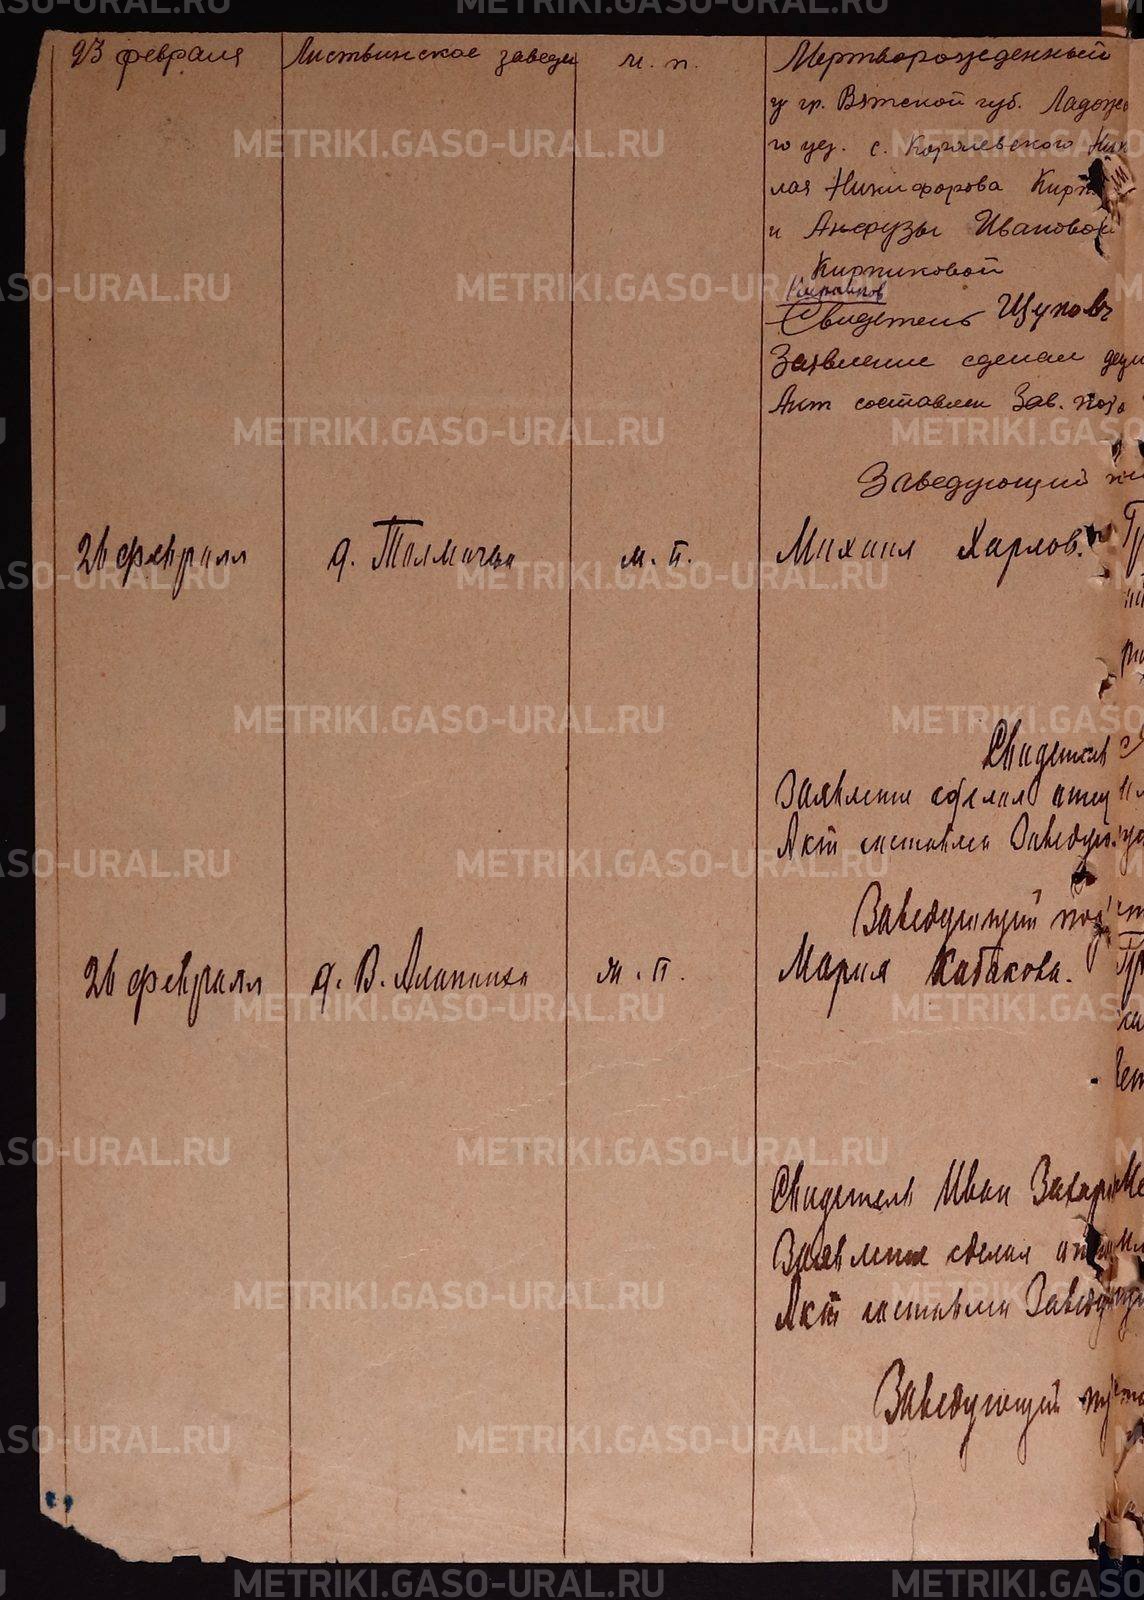 23 февраля
Листвинское заведен
м. п.
Мертворожденный
у гр. Вятской губ.
го уез. с. Королевского Ник
лая Никифорова Кирп
и Анфузы Ивановой
Кирпиковой
Свидетель Щуповъ
Заявление сделал
Акт составлен Зав. подо
Заведующий
26 февраля
д. Толмачева
м. п.
Михаил Харлов.
Свидетель
Заявление сделал отец
Акт составлен Заведую.
Заведующий под
26 февраля
ж. п.
Мария Кабакова.
Свидетель Иван Захар
Заявление сделал
Акт составлен Заведу
Заведующий
METRIKI.GASO-URAL.RU